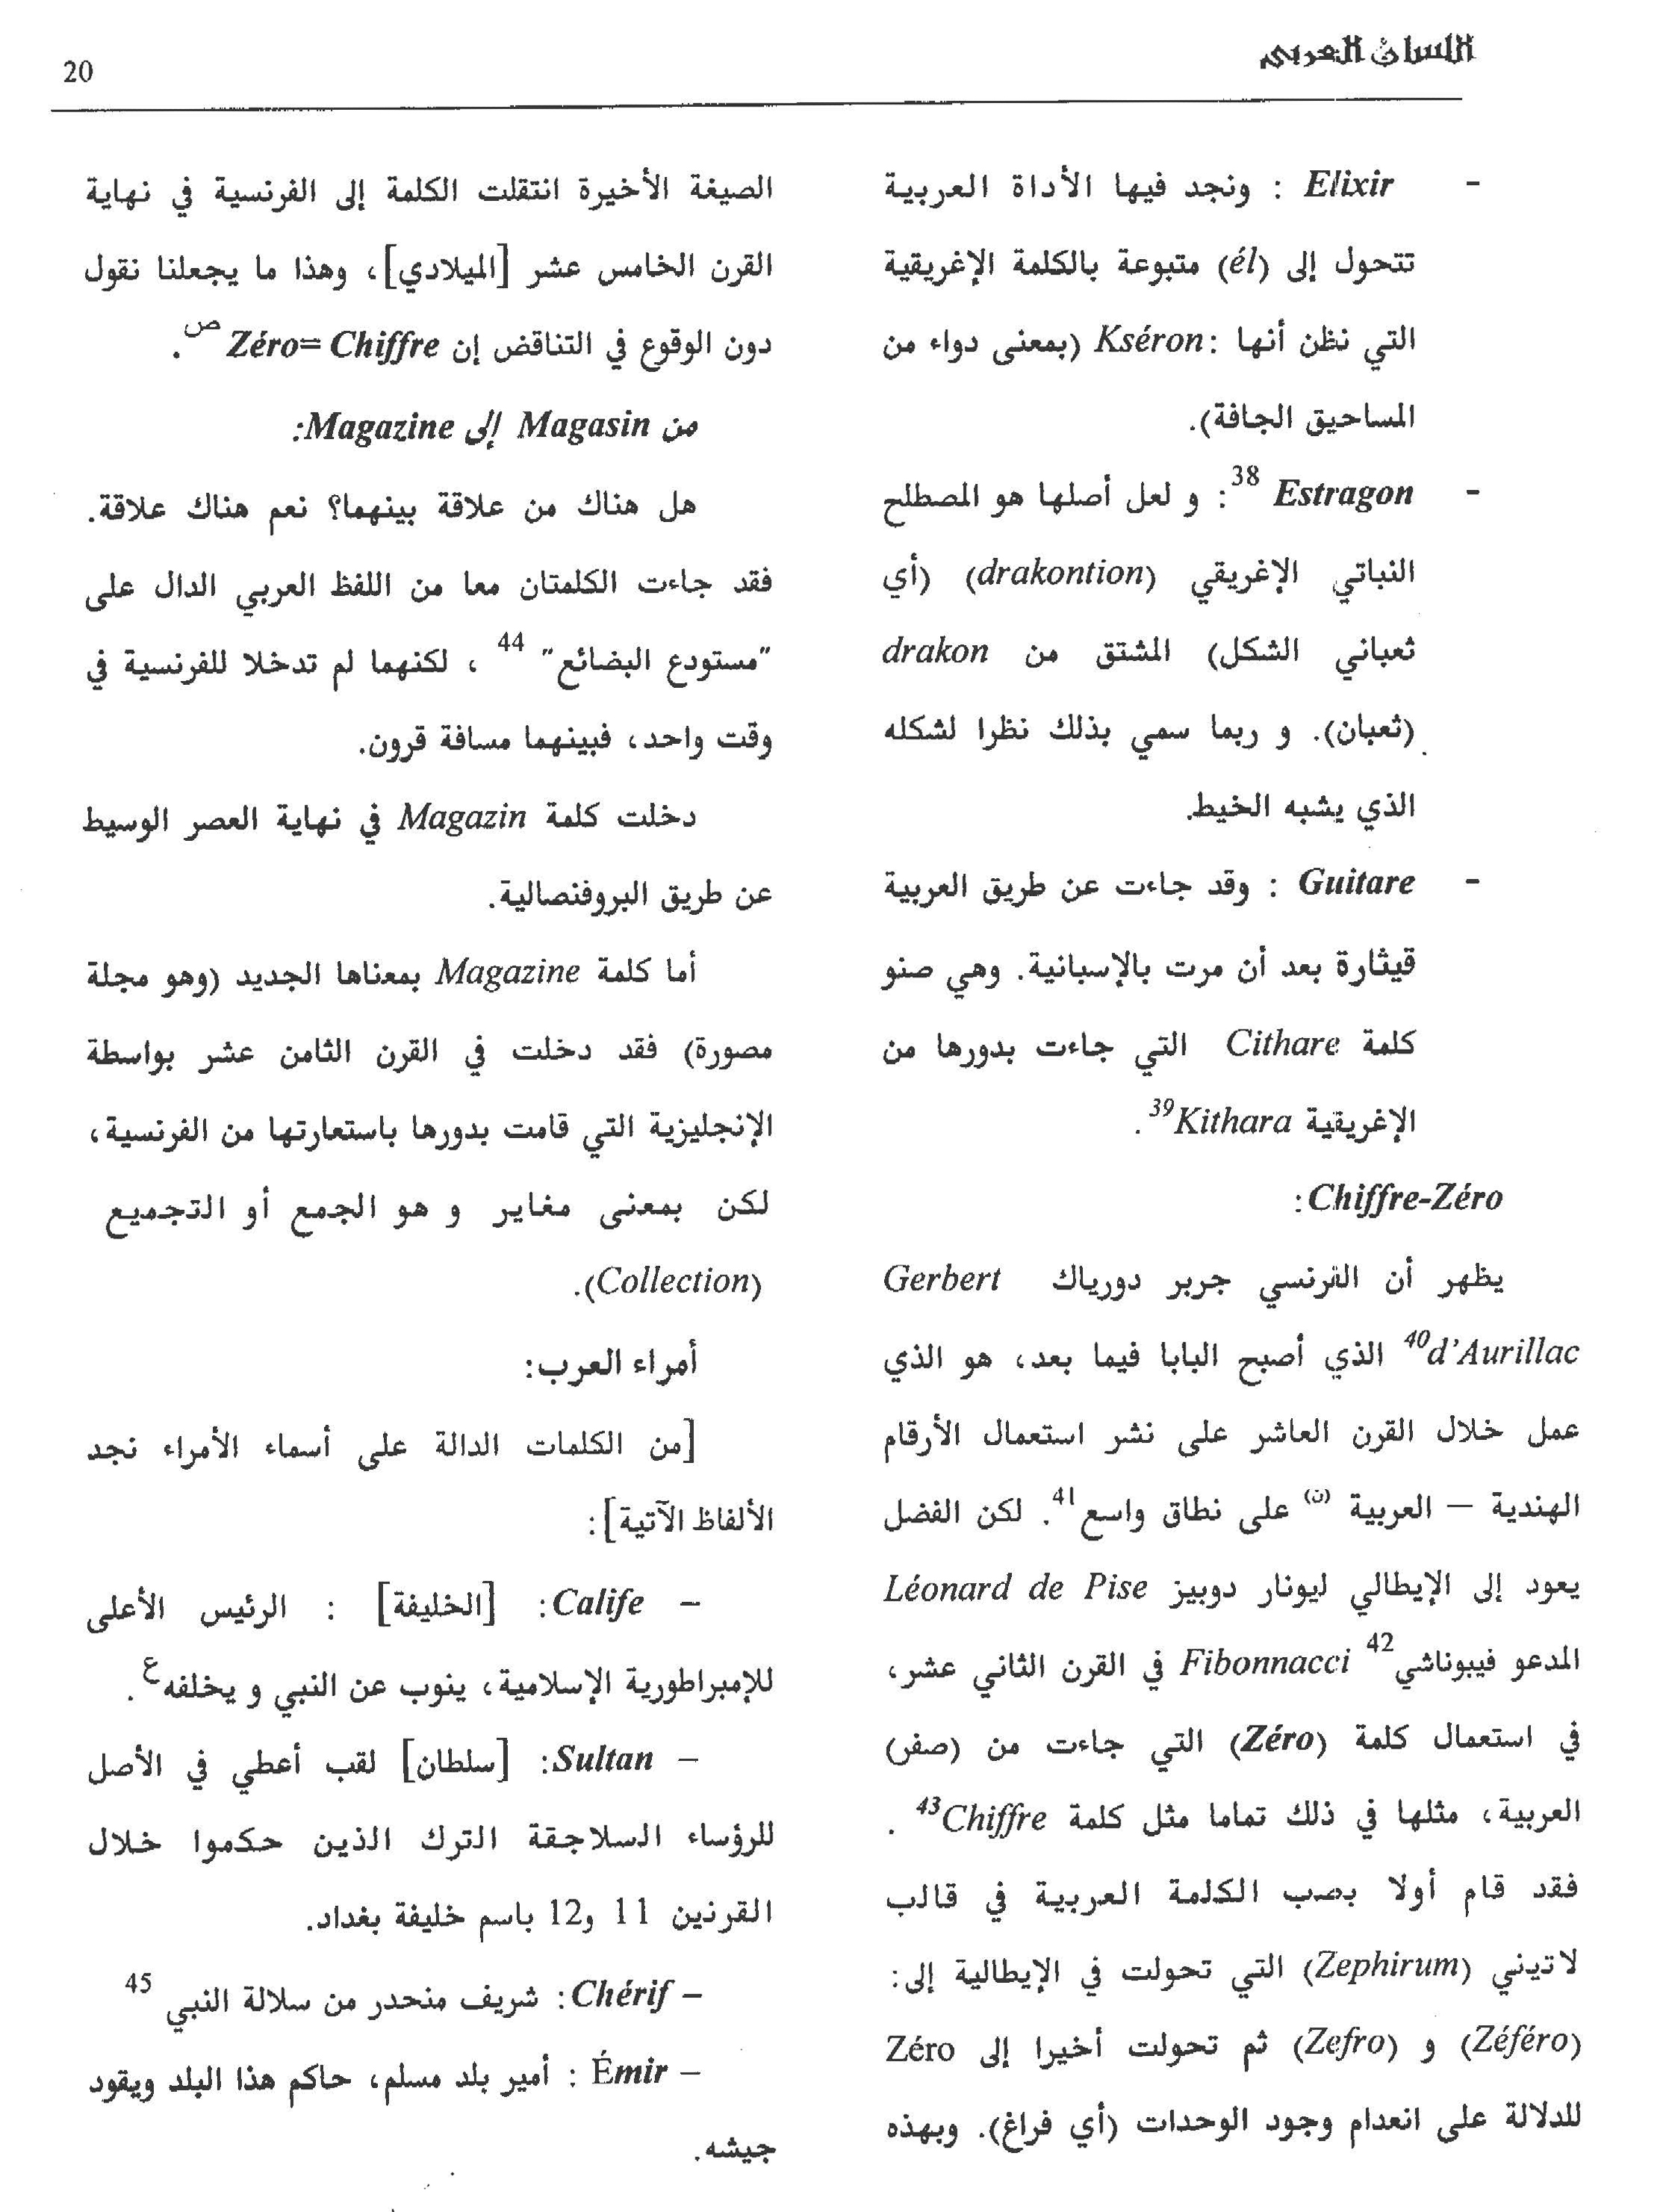 اللسان العربي
20
- Elixir : ونجد فيها الأداة العربية
تتحول إلى (él) متبوعة بالكلمة الإغريقية
التي نظن أنها :Kséron (بمعنى دواء من
المساحيق الجافة).
- Estragon 38: و لعل أصلها هو المصطلح
النباتي الإغريقي (drakontion) (أي
ثعباني الشكل) المشتق من drakon
(ثعبان). و ربما سمي بذلك نظرا لشكله
الذي يشبه الخيط.
- Guitare : وقد جاءت عن طريق العربية
قيثارة بعد أن مرت بالإسبانية. وهي صنو
كلمة Cithare التي جاءت بدورها من
الإغريقية Kithara39.
Chiffre-Zéro:
يظهر أن الفرنسي جربر دورياك Gerbert
d'Aurillac40 الذي أصبح البابا فيما بعد، هو الذي
عمل خلال القرن العاشر على نشر استعمال الأرقام
الهندية – العربية (ن) على نطاق واسع41. لكن الفضل
يعود إلى الإيطالي ليونار دوبيز Léonard de Pise
المدعو فيبوناشي42 Fibonnacci في القرن الثاني عشر،
في استعمال كلمة (Zéro) التي جاءت من (صفر)
العربية، مثلها في ذلك تماما مثل كلمة Chiffre43 .
فقد قام أولا بصب الكلمة العربية في قالب
لاتيني (Zephirum) التي تحولت في الإيطالية إلى:
(Zéféro) و (Zefro) ثم تحولت أخيرا إلى Zéro
للدلالة على انعدام وجود الوحدات (أي فراغ). وبهذه
الصيغة الأخيرة انتقلت الكلمة إلى الفرنسية في نهاية
القرن الخامس عشر [الميلادي]، وهذا ما يجعلنا نقول
دون الوقوع في التناقض إن Zéro= Chiffre ص.
من Magasin إلى Magazine:
هل هناك من علاقة بينهما؟ نعم هناك علاقة.
فقد جاءت الكلمتان معا من اللفظ العربي الدال على
"مستودع البضائع" 44 ، لكنهما لم تدخلا للفرنسية في
وقت واحد، فبينهما مسافة قرون.
دخلت كلمة Magazin في نهاية العصر الوسيط
عن طريق البروفنصالية.
أما كلمة Magazine بمعناها الجديد (وهو مجلة
مصورة) فقد دخلت في القرن الثامن عشر بواسطة
الإنجليزية التي قامت بدورها باستعارتها من الفرنسية،
لكن بمعنى مغاير و هو الجمع أو التجميع
(Collection).
أمراء العرب:
[من الكلمات الدالة على أسماء الأمراء نجد
الألفاظ الآتية]:
– Calife: [الخليفة] : الرئيس الأعلى
للإمبراطورية الإسلامية، ينوب عن النبي و يخلفه ع.
– Sultan: [سلطان] لقب أعطي في الأصل
للرؤساء السلاجقة الترك الذين حكموا خلال
القرنين 11 و12 باسم خليفة بغداد.
– Chérif: شريف منحدر من سلالة النبي 45
– Émir : أمير بلد مسلم، حاكم هذا البلد ويقود
جيشه.